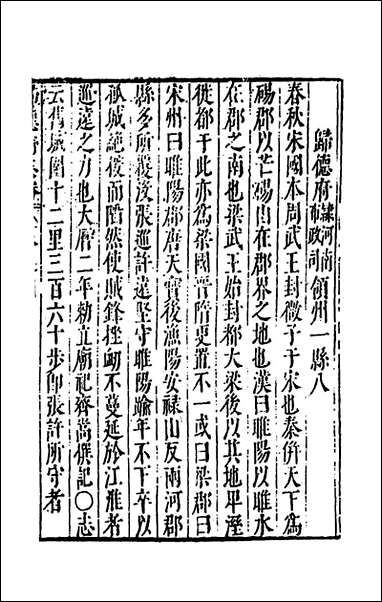 歸德府隸河南布政司領州一縣八
春秋宋國本周武王封微子于宋也秦併天下爲
碭郡以芒碭山在郡界之地也漢曰睢陽以睢水
在郡之南也梁武王始封都大梁後以其地卑溼
徙都于此亦爲梁國晉隋更置不一或曰梁郡曰
宋州曰睢陽郡唐天寶後漁陽安祿山反兩河郡
縣多所覆沒張巡許遠堅守睢陽踰年不下卒以
孤城絕後而陷然使賊鋒挫衂不蔓延於江淮者
巡遠之力也大曆二年勅立廟祀齊嵩僎記〇志
云舊城圍十二里三百六十步卽張許所守者